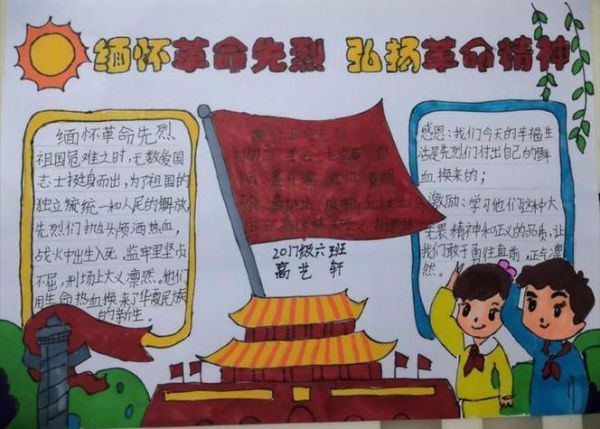 缅怀革命先烈 弘扬革命精神
缅怀革命先烈
祖国危难之时,无数爱国
志士挺身而出,为了祖国的
独立统一和人民的解放,
先烈们抛头颅洒热血,
战火中出生入死,监牢里坚贞
不屈,刑场上大义凛然。他们
用生命热血换来了华夏民族
的新生。
2017级六班
高艺轩
感恩:我们今天的幸福生
活是先烈们付出自己的鲜
血换来的;
激励:学习他们这种大
无畏精神和正义的品质,让
我们敢于勇往直前,正气凛
然。